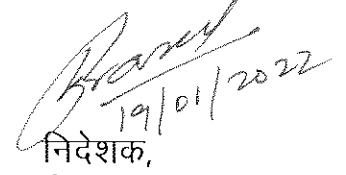 19/01/2022
निदेशक,